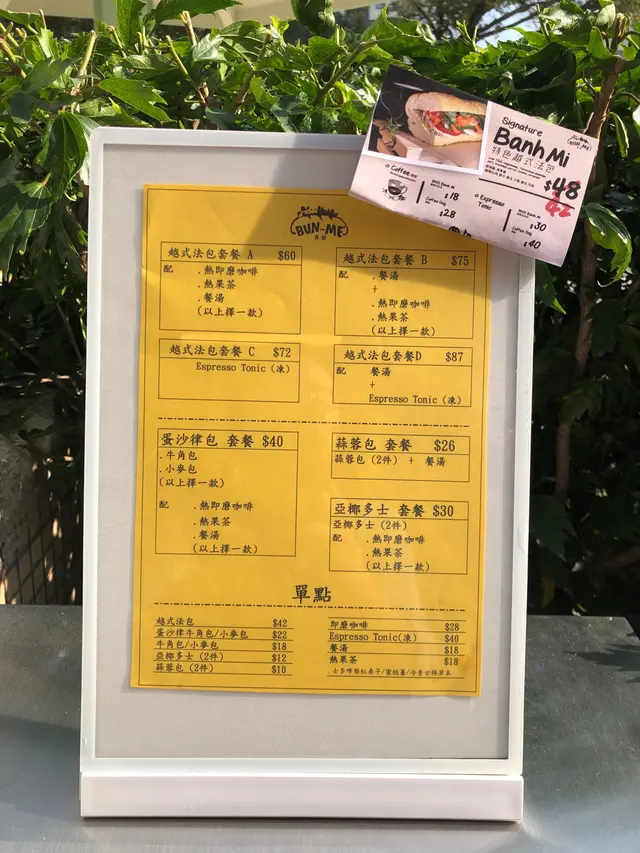 Signature
Banh Mi
特色越式法包
BUN-ME
$48
42
Coffee
With Banh Mi
$18
Coffee Only
$28
Espresso
Tonic
$30
$40
BUN-ME
越式法包套餐 A $60
配 .熱即磨咖啡
.熱果茶
.餐湯
(以上擇一款)
越式法包套餐 B $75
配 .餐湯
+
.熱即磨咖啡
.熱果茶
(以上擇一款)
越式法包套餐 C $72
Espresso Tonic (凍)
越式法包套餐D $87
配 餐湯
+
Espresso Tonic (凍)
蛋沙律包 套餐 $40
.牛角包
.小麥包
(以上擇一款)
配 .熱即磨咖啡
.熱果茶
.餐湯
(以上擇一款)
蒜蓉包 套餐 $26
蒜蓉包 (2件) + 餐湯
亞椰多士 套餐 $30
亞椰多士 (2件)
配 .熱即磨咖啡
.熱果茶
(以上擇一款)
單點
越式法包 $42
蛋沙律牛角包/小麥包 $22
牛角包/小麥包 $18
亞椰多士 (2件) $12
蒜蓉包 (2件) $10
即磨咖啡 $28
Espresso Tonic(凍) $40
餐湯 $18
熱果茶 $18